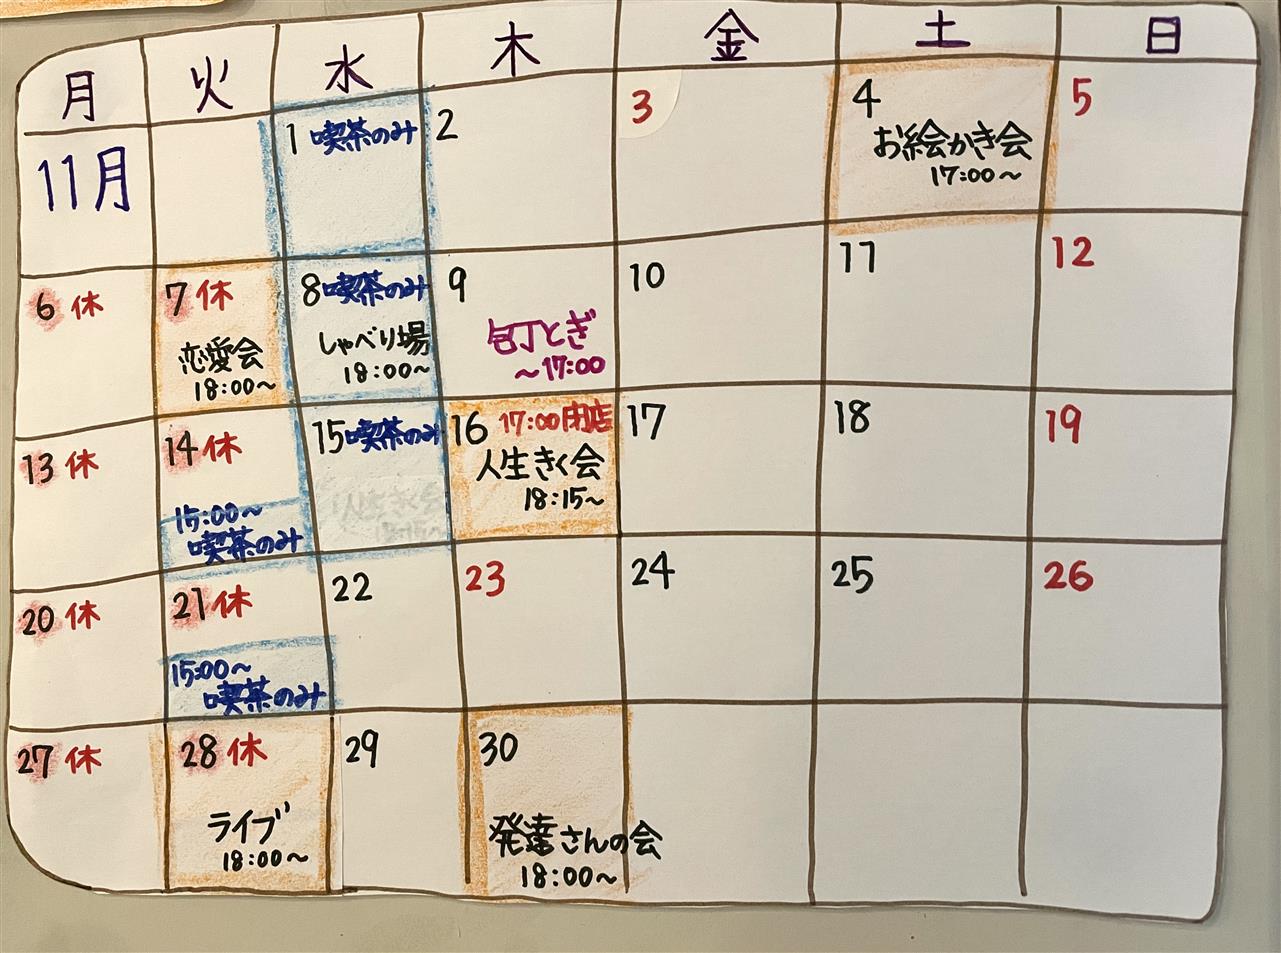 月 火 水 木 金 土 日
11月
1 喫茶のみ
2
3
4
お絵かき会
17:00〜
5
6 休
7 休
恋愛会
18:00〜
8 喫茶のみ
しゃべり場
18:00〜
9
包丁とぎ
〜17:00
10
11
12
13 休
14 休
15:00〜
喫茶のみ
15 喫茶のみ
人生きく会
18:15〜
16 17:00閉店
人生きく会
18:15〜
17
18
19
20 休
21 休
15:00〜
喫茶のみ
22
23
24
25
26
27 休
28 休
ライブ
18:00〜
29
30
発達さんの会
18:00〜